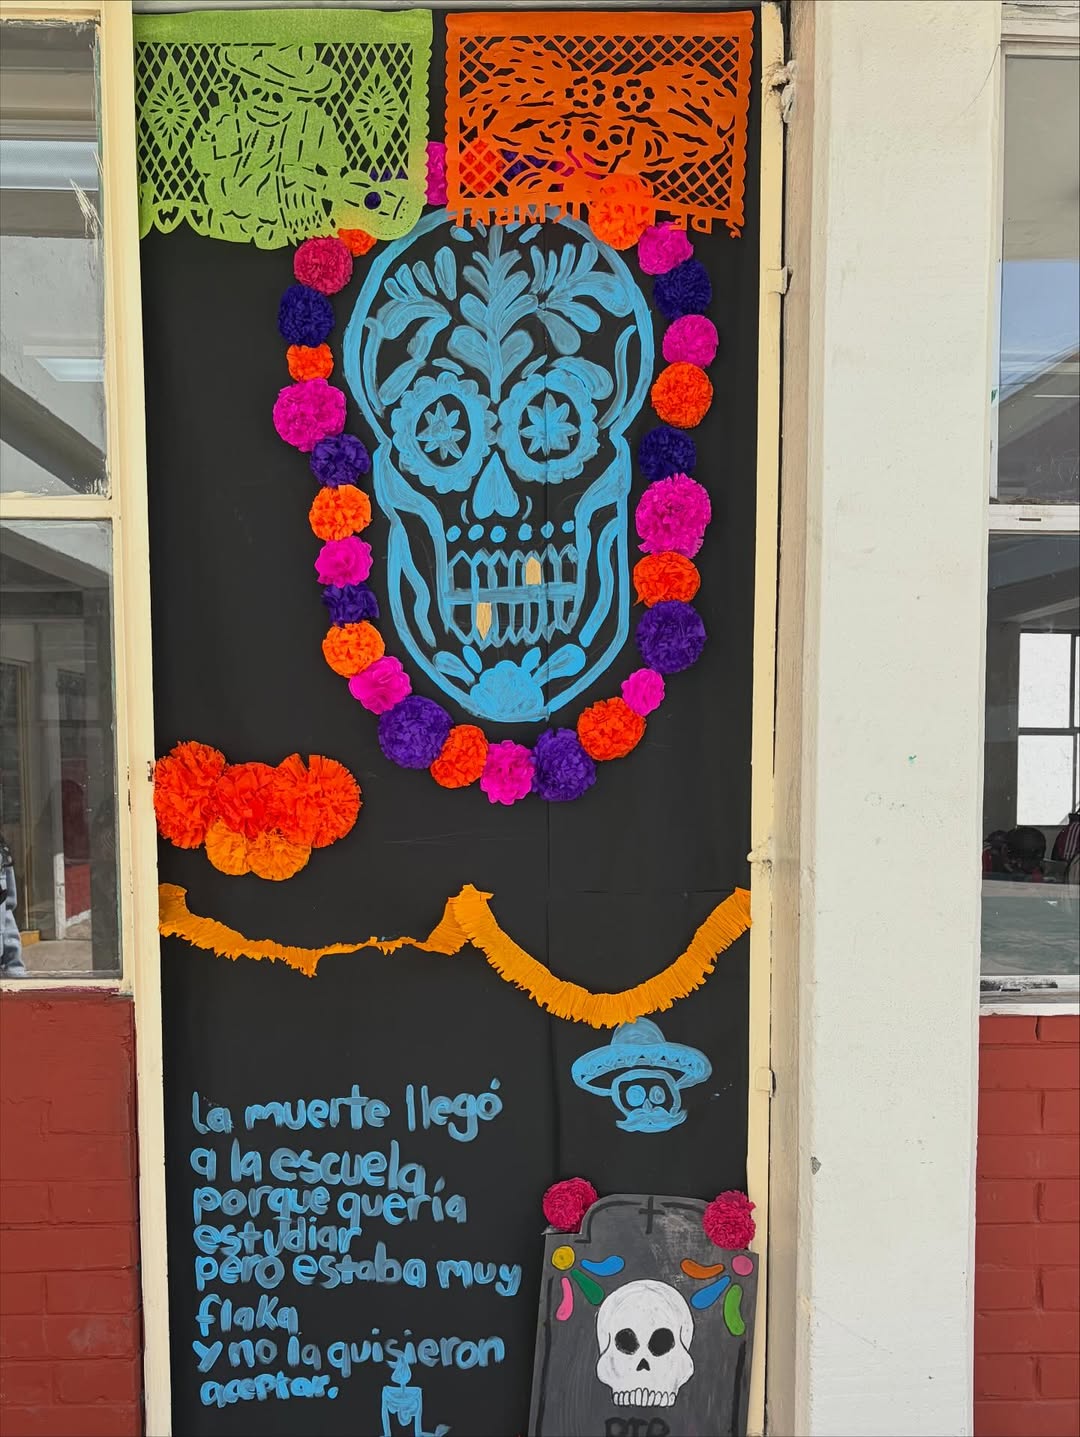 DE
La muerte llegó
a la escuela,
porque quería
estudiar
pero estaba muy
flaka
y no la quisieron
aceptar.